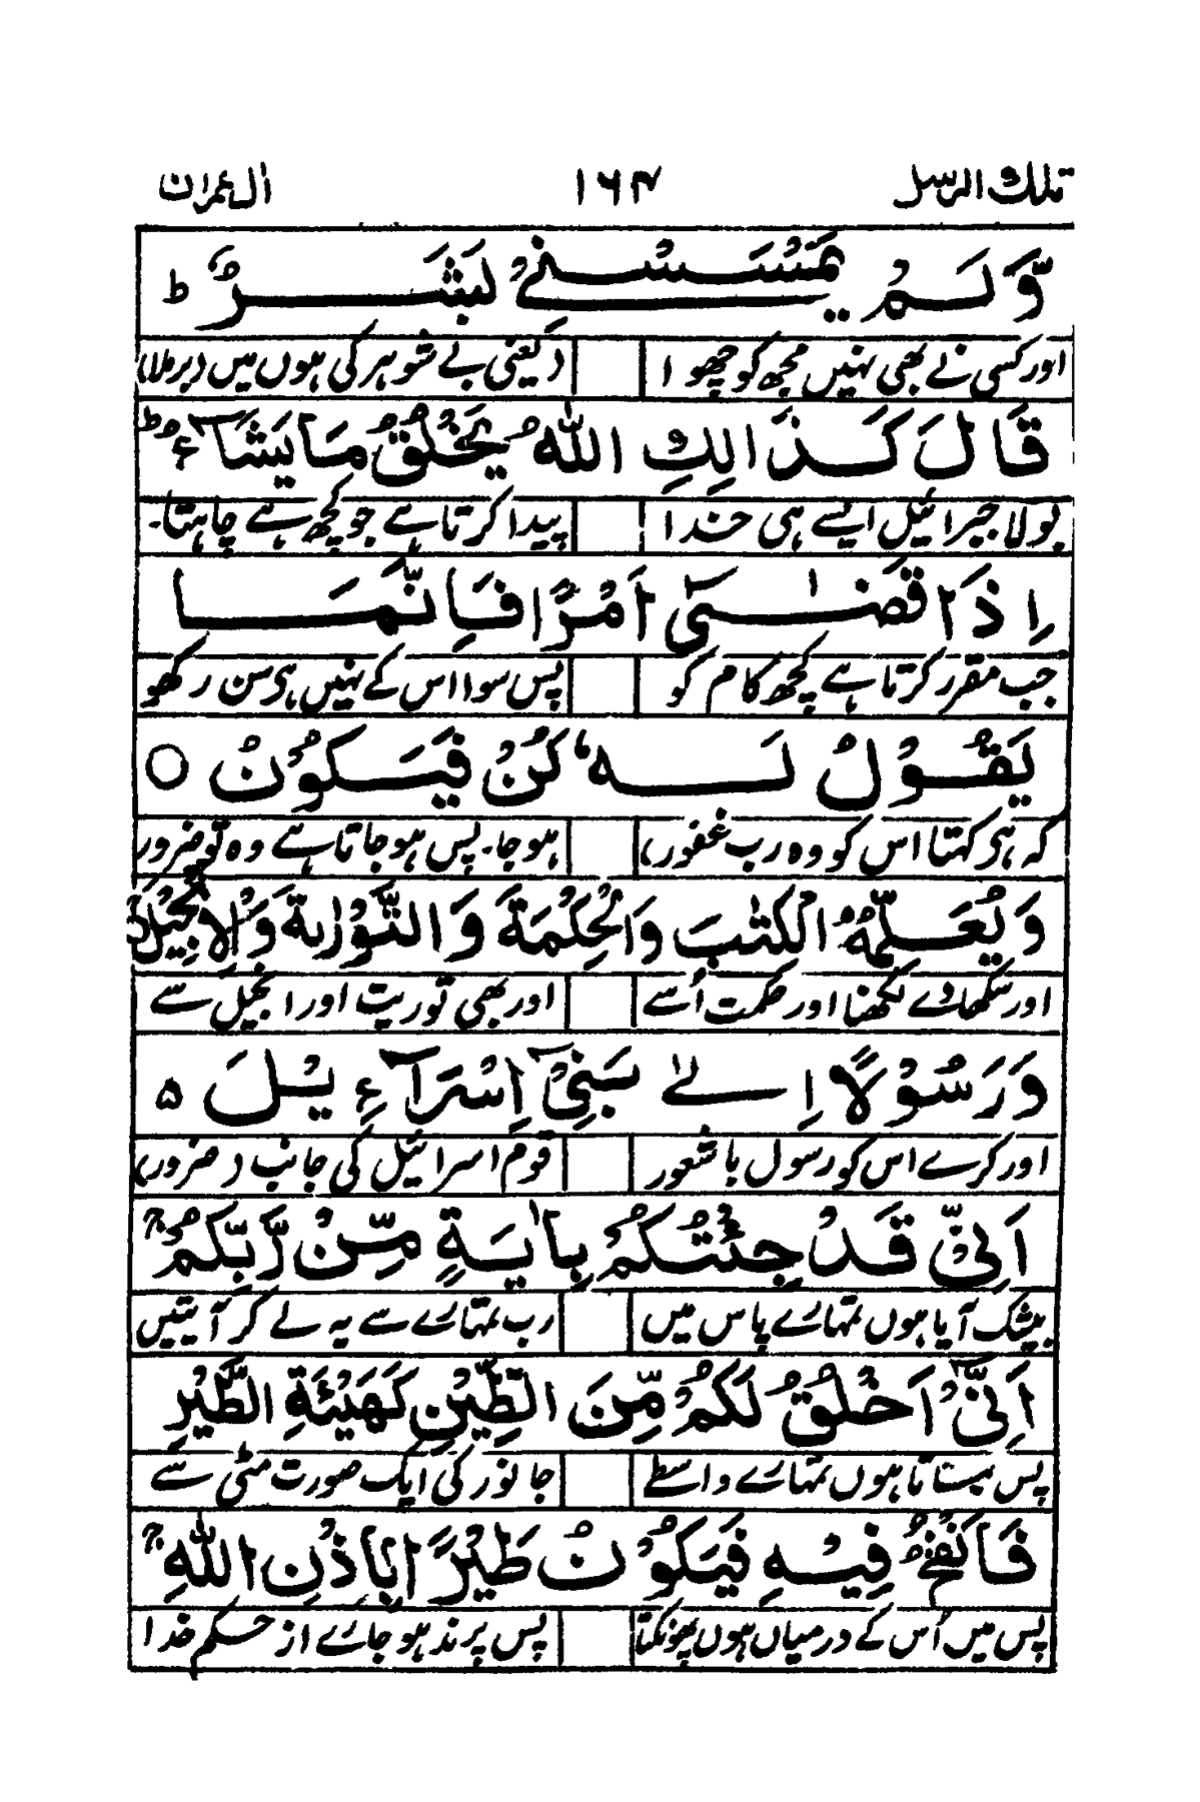 تلك الرسل ۱۶۴ ال عمران
وَّلَمْ يَمْسَسْنِيْ بَشَرٌ ؕ
اور کسی نے بھی نہیں مجھ کو چھوا (یعنی بے شوہر کی ہوں میں (برملا)
قَالَ كَذَالِكِ اللّٰهُ يَخْلُقُ مَا يَشَآءُ ؕ
بولا جبرائیل ایسے ہی خدا پیدا کرتا ہے جو کچھ ہے چاہتا۔
اِذَا قَضٰۤى اَمْرًا فَاِنَّمَا
جب مقرر کرتا ہے کچھ کام کو پس سوا اس کے نہیں ہی سن رکھو
يَقُوْلُ لَهٗ كُنْ فَيَكُوْنُ ○
کہ ہی کہتا اس کو وہ رب غفور) ہو جا۔ پس ہو جاتا ہے وہ تو ضرور
وَيُعَلِّمُهُ الْكِتٰبَ وَالْحِكْمَةَ وَالتَّوْرٰىةَ وَالْاِنْجِيْلَ
اور سکھا دے لکھنا اور حکمت اُسے اور بھی توریت اور انجیل سے
وَرَسُوْلًا اِلٰى بَنِيْۤ اِسْرَآءِيْلَ ۵
اور کرے اس کو رسول با شعور قوم اسرائیل کی جانب (ضرور)
اَنِّيْ قَدْ جِئْتُكُمْ بِاٰيَةٍ مِّنْ رَّبِّكُمْ ۙ
بیشک آیا ہوں تمہارے پاس میں رب تمہارے سے یہ لے کر آیتیں
اَنِّيْۤ اَخْلُقُ لَكُمْ مِّنَ الطِّيْنِ كَهَيْئَةِ الطَّيْرِ
پس بناتا ہوں تمہارے واسطے جانور کی ایک صورت مٹی سے
فَاَنْفُخُ فِيْهِ فَيَكُوْنُ طَيْرًا بِاِذْنِ اللّٰهِ ۚ
پس میں اُس کے درمیاں ہوں پھونکتا پس پرند ہو جارے از حکم خدا